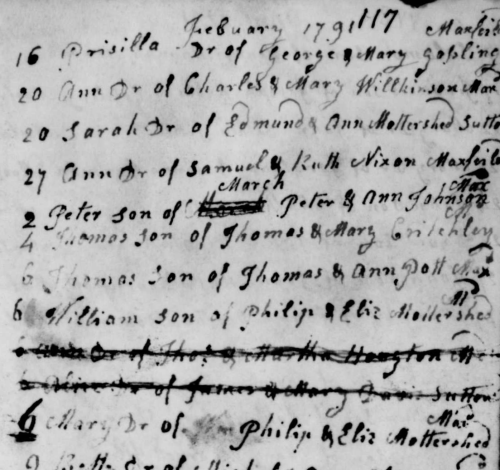 Febuary 1791 117 Maxfeild
16 Prisilla Dr of George & Mary Gosling
20 Ann Dr of Charles & Mary Willkinson Max
20 Sarah Dr of Edmund & Ann Mottershed Sutton
27 Ann Dr of Samuel & Ruth Nixon Maxfeild
March Max
2 Peter Son of Peter & Ann Johnson
4 Thomas Son of Thomas & Mary Critchley
6 Thomas Son of Thomas & Ann Pott Max
6 William Son of Philip & Eliz Mottershed M
6 Dr of Thos & Martha Hougton M
6 Alice Dr of James & Mary Sutton
6 Mary Dr of Philip & Eliz Mottershed Max
9 Betty Dr of & Ann